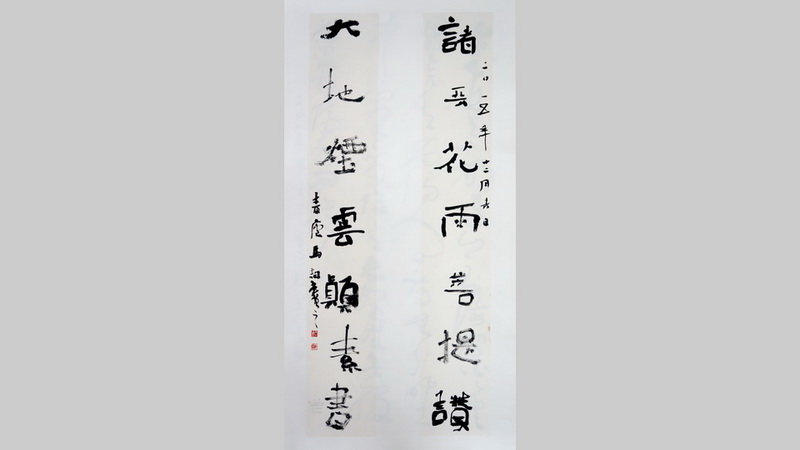 諸天花雨菩提讚
二〇一五年十二月六日
大地煙雲顛素書